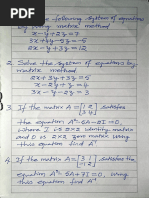 the following system of equations
by using matrix method
x-y+2z=7
3x+4y-5z=-5
2x-y+3z=12
2. Solve the system of equations by
matrix method
2x+3y+3z=5
x-2y+z=-4
3x-y-2z=3
3. If the matrix A = [1 2
3 4] satisfies
the equation A²-5A-2I=0,
where I is 2x2 identity matrix
and O is 2x2 zero matrix using
this equation find A⁻¹
4. If the matrix A = [3 1
-1 2] satisfies the
equation A²-5A+7I=0, using
this equation find A⁻¹